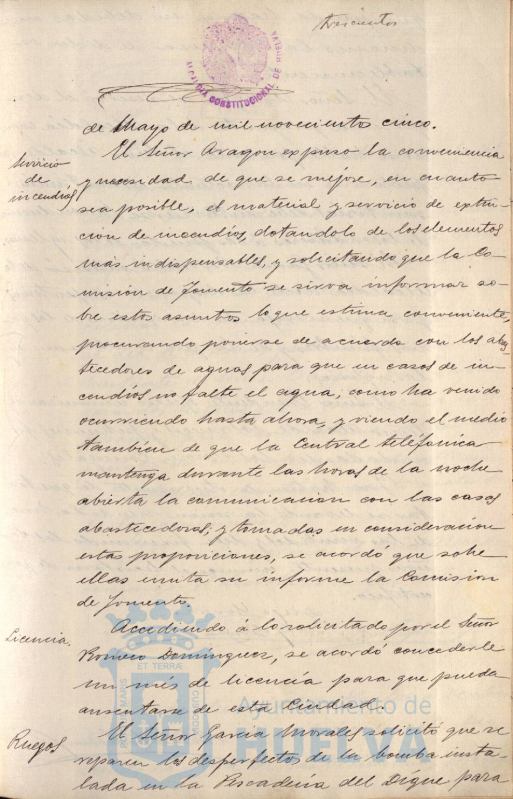 trescientos
ALCALDIA CONSTITUCIONAL DE HUELVA
de Mayo de mil novecientos cinco.
Servicio
de
incendios
El Señor Aragon expuso la conveniencia
y necesidad de que se mejore, en cuanto
sea posible, el material y servicio de extin-
ción de incendios, dotandolo de los elementos
más indispensables, y solicitando que la Co-
misión de Fomento se sirva informar so-
bre estos asuntos lo que estima conveniente,
procurando ponerse de acuerdo con los abas
tecedores de aguas para que en casos de in-
cendios no falte el agua, como ha venido
ocurriendo hasta ahora, y viendo el medio
tambien de que la Central telefónica
mantenga durante las horas de la noche
abierta la comunicacion con las casas
abastecedoras, y tomadas en consideracion
estas proposiciones, se acordó que sobre
ellas emita su informe la Comision
de fomento.
Licencia.
Accediendo á lo solicitado por el Señor
Romero Dominguez, se acordó concederle
un més de licencia para que pueda
ausentarse de esta Ciudad.
Ruegos
El Señor Garcia Morales solicitó que se
reparen los desperfectos de la bomba insta
lada en la Pescadería del Dique para
PORTUS MARIS ET TERRÆ CUSTODIA
Ayuntamiento de
HUELVA